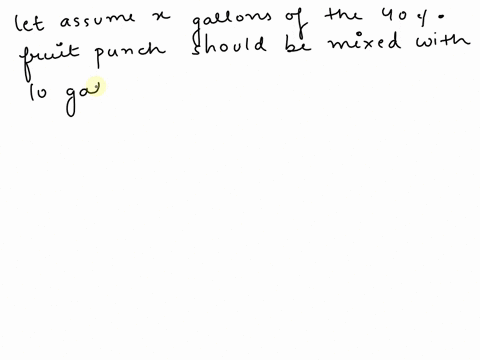 let assume x gallons of the 40%.
fruit punch should be mixed with
10 ga